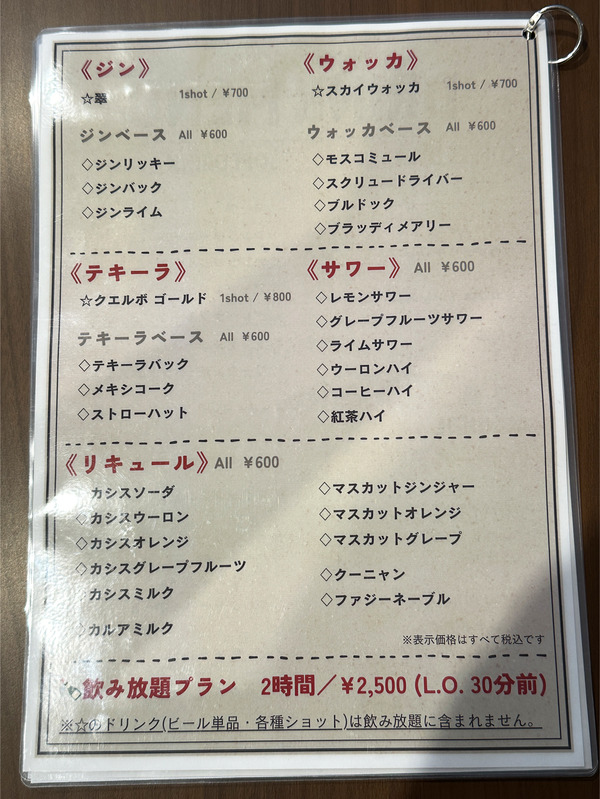 《ジン》
☆翠 1shot / ¥700
ジンベース All ¥600
◇ジンリッキー
◇ジンバック
◇ジンライム
《ウォッカ》
☆スカイウォッカ 1shot / ¥700
ウォッカベース All ¥600
◇モスコミュール
◇スクリュードライバー
◇ブルドック
◇ブラッディメアリー
《テキーラ》
☆クエルボ ゴールド 1shot / ¥800
テキーラベース All ¥600
◇テキーラバック
◇メキシコーク
◇ストローハット
《サワー》 All ¥600
◇レモンサワー
◇グレープフルーツサワー
◇ライムサワー
◇ウーロンハイ
◇コーヒーハイ
◇紅茶ハイ
《リキュール》All ¥600
カシスソーダ
◇カシスウーロン
◇カシスオレンジ
◇カシスグレープフルーツ
カシスミルク
◇カルアミルク
◇マスカットジンジャー
◇マスカットオレンジ
◇マスカットグレープ
◇クーニャン
◇ファジーネーブル
※表示価格はすべて税込です
飲み放題プラン 2時間／¥2,500 (L.O. 30分前)
※☆のドリンク(ビール単品・各種ショット)は飲み放題に含まれません。